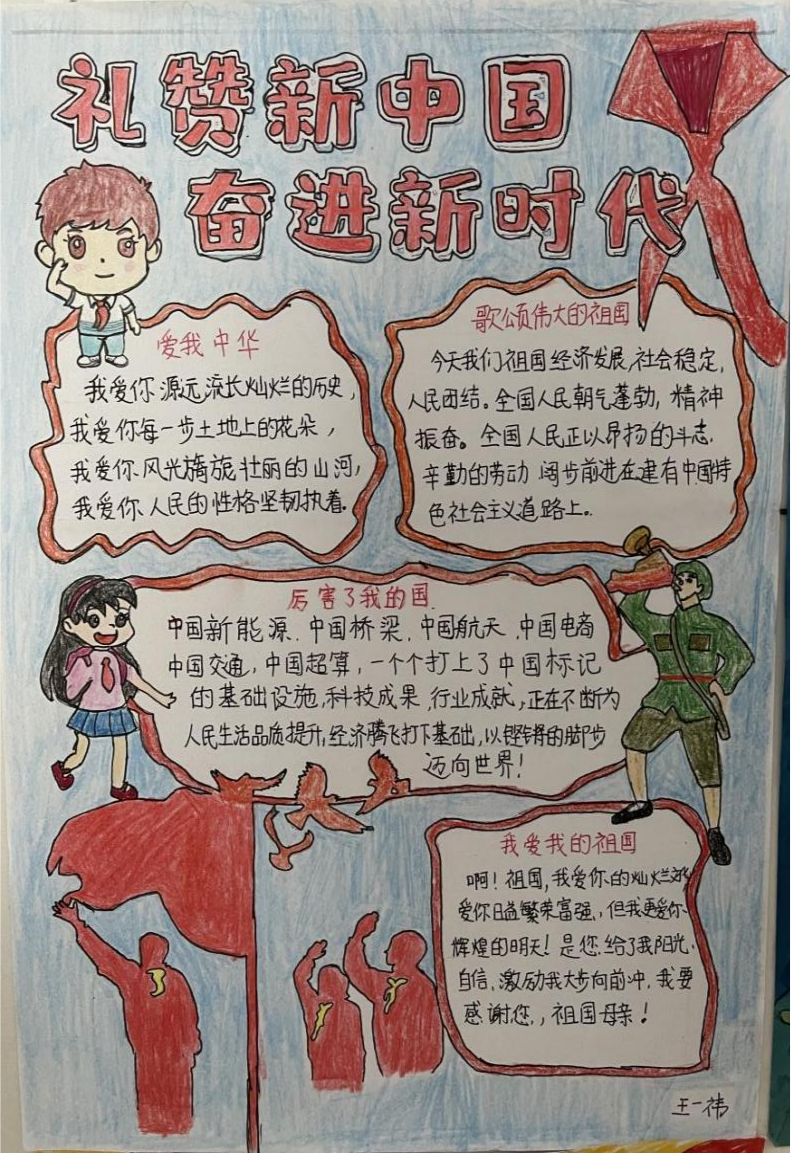 礼赞新中国
奋进新时代
爱我中华
我爱你源远流长灿烂的历史，
我爱你每一步土地上的花朵，
我爱你风光旖旎壮丽的山河，
我爱你人民的性格坚韧执着。
歌颂伟大的祖国
今天我们祖国经济发展，社会稳定，
人民团结。全国人民朝气蓬勃，精神
振奋。全国人民正以昂扬的斗志，
辛勤的劳动 阔步前进在建有中国特
色社会主义道路上。
厉害了我的国
中国新能源、中国桥梁、中国航天、中国电商
中国交通，中国超算，一个个打上了中国标记
的基础设施，科技成果，行业成就，正在不断为
人民生活品质提升，经济腾飞打下基础，以铿锵的脚步
迈向世界！
我爱我的祖国
啊！祖国，我爱你的灿烂文化
爱你日益繁荣富强，但我更爱你
辉煌的明天！是您给了我阳光、
自信，激励我大步向前冲，我要
感谢您，祖国母亲！
王一祎